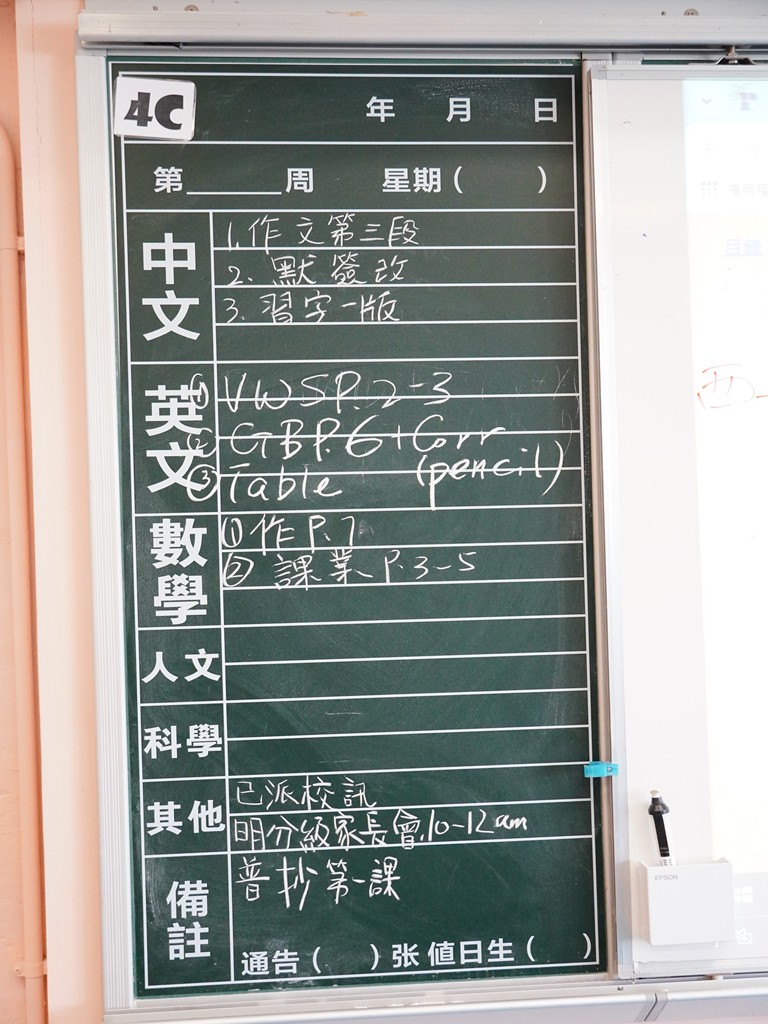 4C
年 月 日
第______周 星期( )
中文
1.作文第三段
2. 默簽改
3. 習字一版
英文
① VWS P.2-3
② GB P.6+Corr
(pencil)
③ Table
數學
① 作 P.7
② 課業 P.3-5
人文
科學
其他
已派校訊
明分級家長會.10-12am
備註
普抄第一課
通告( )张 值日生( )
EPSON
西